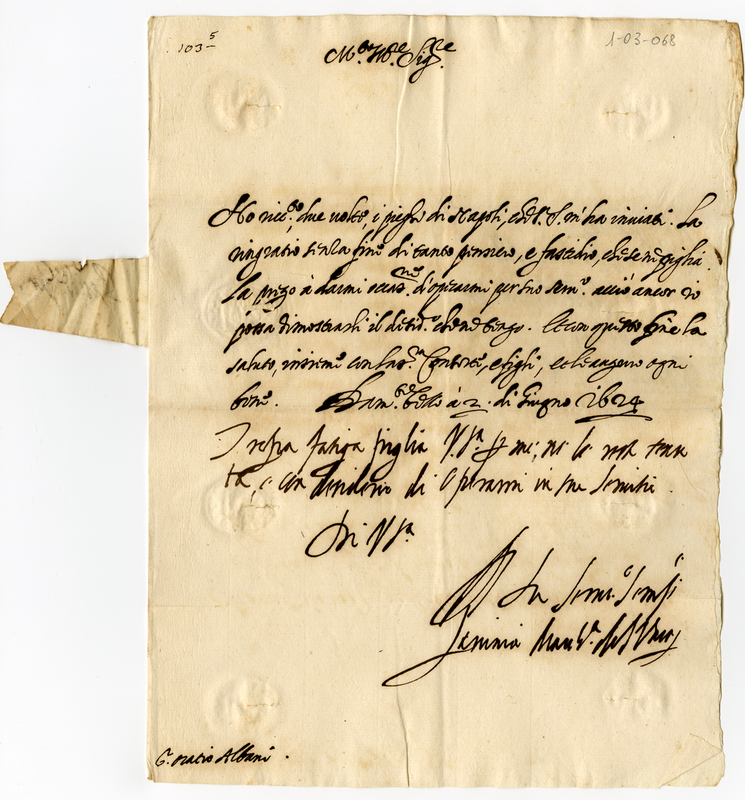 103 5
1-03-068
M.to Ill.re Sig.re
Ho ricc.to due volte, i pieghi di Napoli, che V.S. m'ha inviati. La
ringratio senza fine di tanto pensiero, e fastidio, che se ne piglia.
La prego à darmi occas.ne d'oprarmi per suo ser.o acciò ancor io
possa dimostrarli il desid.o che ne tengo. Et con questo fine la
saluto, insiem.e con la S.ra Consorte, e figli, e le auguro ogni
bene. à 2 di Giugno 1624
fatiga piglia V.S.ra me, ne le resto tenu
ta, e con desiderio di operarmi in suo servitio.
Di V.S.ra
Oratio Albani.